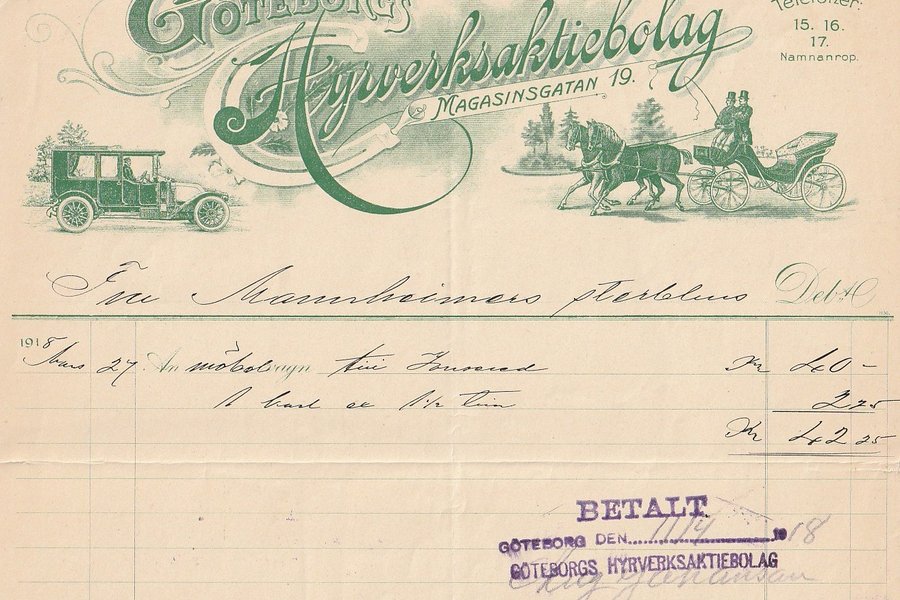 GÖTEBORGS
Hyrverksaktiebolag
MAGASINSGATAN 19.
Telefoner:
15. 16.
17.
Namnanrop.
Fru Mannheimers sterbhus Debet
1918
Mars 27 An möbelvagn till Kr 40 -
1 karl 1/2 tim 2 25
Kr 42 25
BETALT
GÖTEBORG DEN 11/4 1918
GÖTEBORGS HYRVERKSAKTIEBOLAG
Johansson